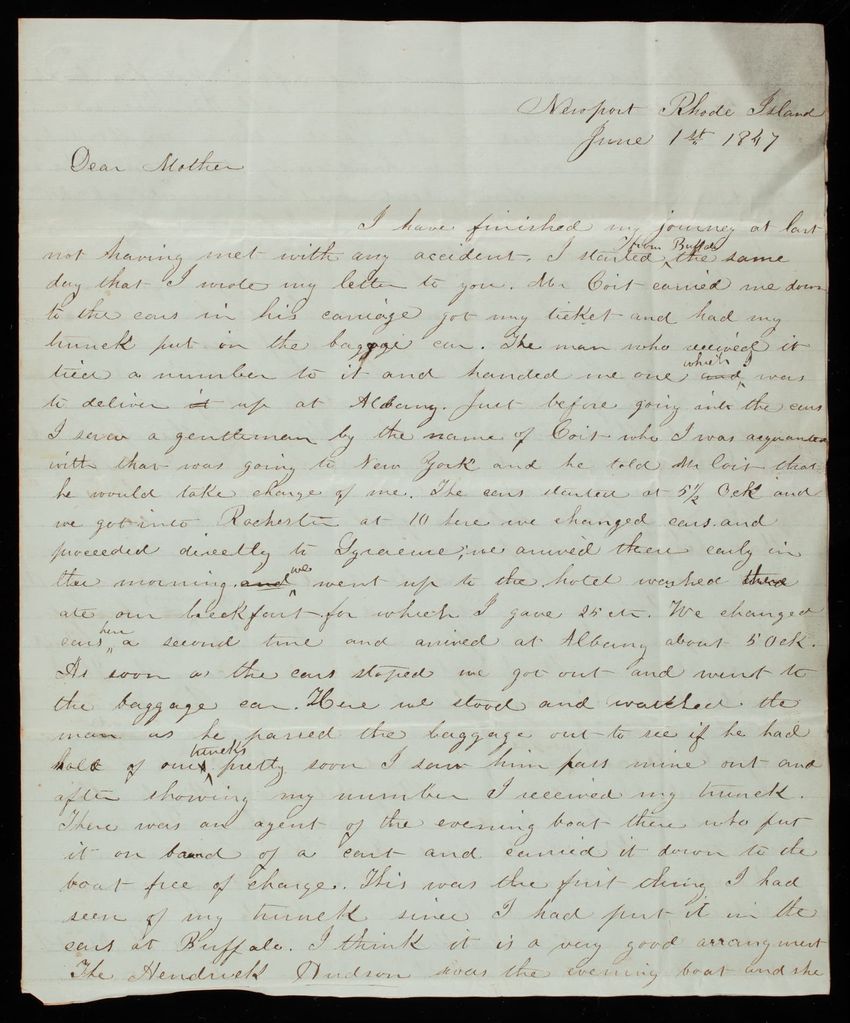 Newport Rhode Island
June 1st 1847
Dear Mother
I have finished my journey at last
not having met with any accident. I started from Buffalo the same
day that I wrote my letter to you. Mr Coit carried me down
to the cars in his carriage got my ticket and had my
trunck put on the baggage car. The man who received it
tied a number to it and handed me one and which I was
to deliver it up at Albany. Just before going into the cars
I saw a gentleman by the name of Coit who I was acquainted
with that was going to New York and he told Mr Coit that
he would take charge of me. The cars started at 5½ Ock and
we got into Rochester at 10 here we changed cars and
proceeded directly to Syracuse; we arrived there early in
the morning and we went up to the hotel washed
ate our breckfast for which I gave 25 cts. We changed
cars here a second time and arrived at Albany about 5 Ock.
As soon as the cars stoped we got out and went to
the baggage car. Here we stood and watched the
man as he passed the baggage out to see if he had
hold of our truncks pretty soon I saw him pass mine out and
after showing my number I received my trunck.
There was an agent of the evening boat there who put
it on board of a cart and carried it down to the
boat free of charge. This was the first thing I had
seen of my trunck since I had put it in the
cars at Buffalo. I think it is a very good arrangment
The Hendrick Hudson was the evening boat and she